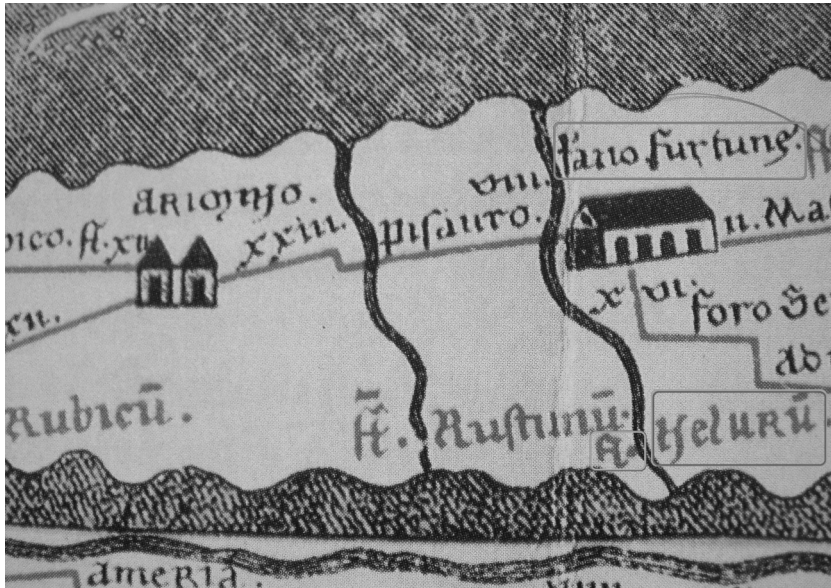 fano furtune.
ARIOMNO.
VIII.
pico. fl. XII
XXIII.
pisauro.
II. Ma
XII.
X VI.
foro Se
Ad
Rubicū.
fl̄.
Rustunū.
fl.
Helurū.
AmeRIA.
VIIII